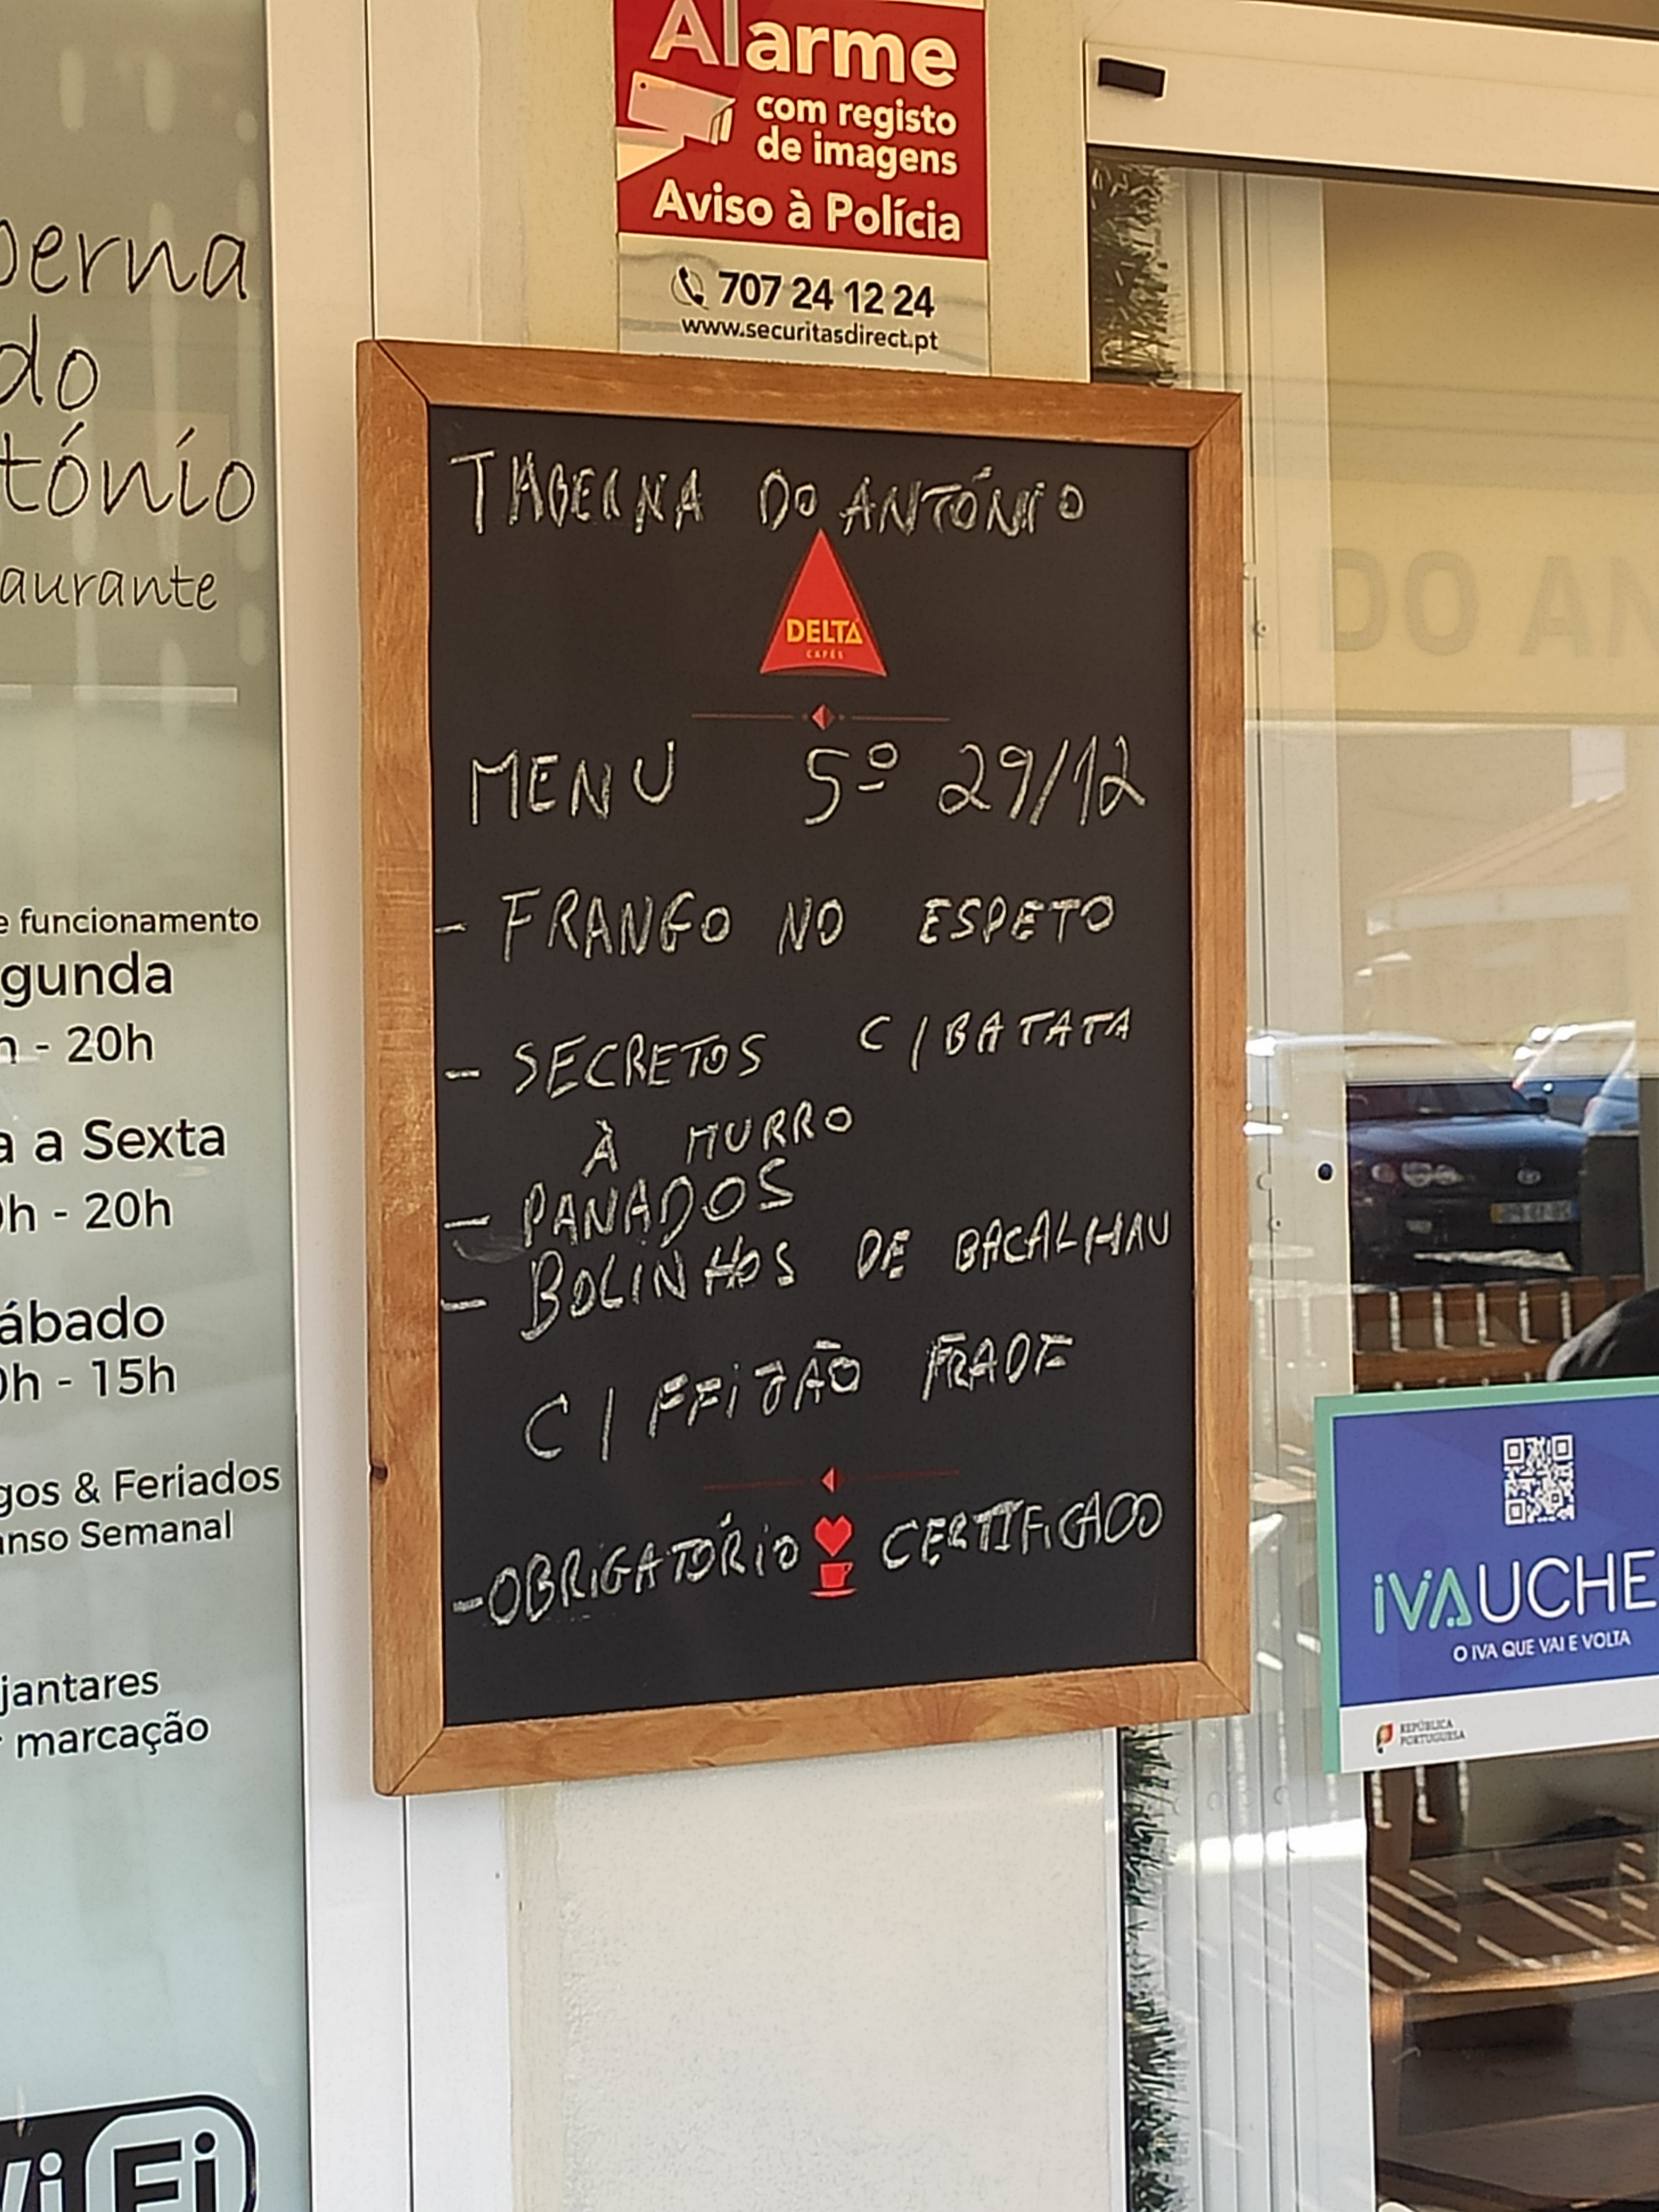 Alarme
com registo
de imagens
Aviso à Polícia
707 24 12 24
www.securitasdirect.pt
do
aurante
funcionamento
gunda
- 20h
a Sexta
- 20h
ábado
- 15h
& Feriados
Semanal
jantares
marcação
TABERNA DO ANTÓNIO
DELTA
CAFÉS
MENU 5º 29/12
- FRANGO NO ESPETO
- SECRETOS C/BATATA
À MURRO
- PANADOS
- BOLINHOS DE BACALHAU
C/ FEIJÃO FRADE
-OBRIGATÓRIO CERTIFICADO
DO AN
iVAUCHE
O IVA QUE VAI E VOLTA
REPÚBLICA
PORTUGUESA
Fi